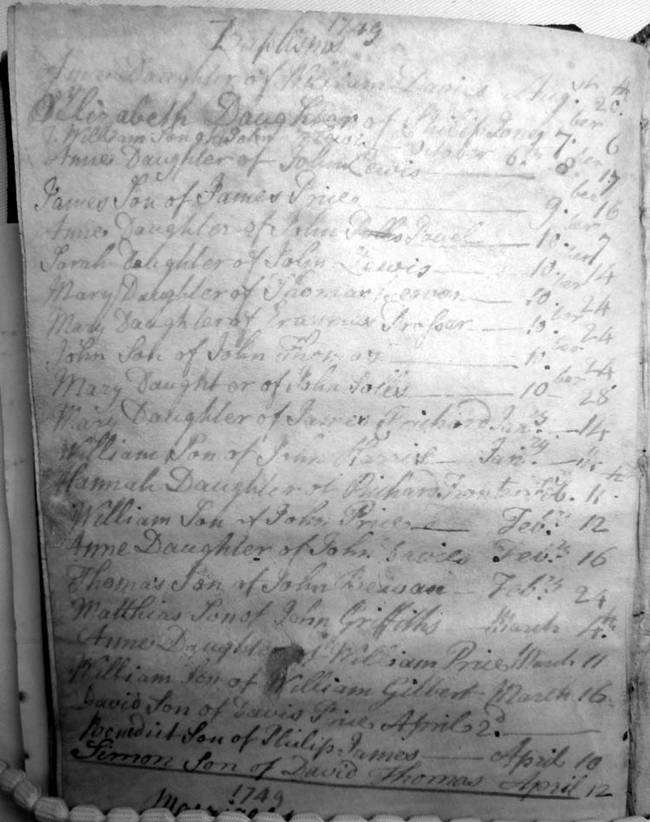 1749
Baptisms
Anne Daughter of William Davies Aug.st 20th
Elizabeth Daughter of Philip 7.ber 6
William Son of John October 6.th
Anne Daughter of John Lewis 8.ber 17
James Son of James Price 9.ber 16
Anne Daughter of John Powel 10.ber 7
Sarah Daughter of John Lewis 10.ber 14
Mary Daughter of Thomas 10.ber 24
Mary Daughter of Erasmus Prosser 10.ber 24
John Son of John Thomas 10.ber 24
Mary Daughter of John 10.ber 28
Mary Daughter of James Prichard Jan.ry 14
William Son of John Harris Jan.ry
Hannah Daughter of Richard Feb. 11th
William Son of John Price Feb.ry 12
Anne Daughter of John Davies Feb.ry 16
Thomas Son of John Beavan Feb.ry 24
Matthias Son of John Griffiths March 4th
Anne Daughter of William Price March 11
William Son of William Gilbert March 16
David Son of Davis Price April 2d
Benedict Son of Philip James April 10
Simon Son of David Thomas April 12
1749
Marriages